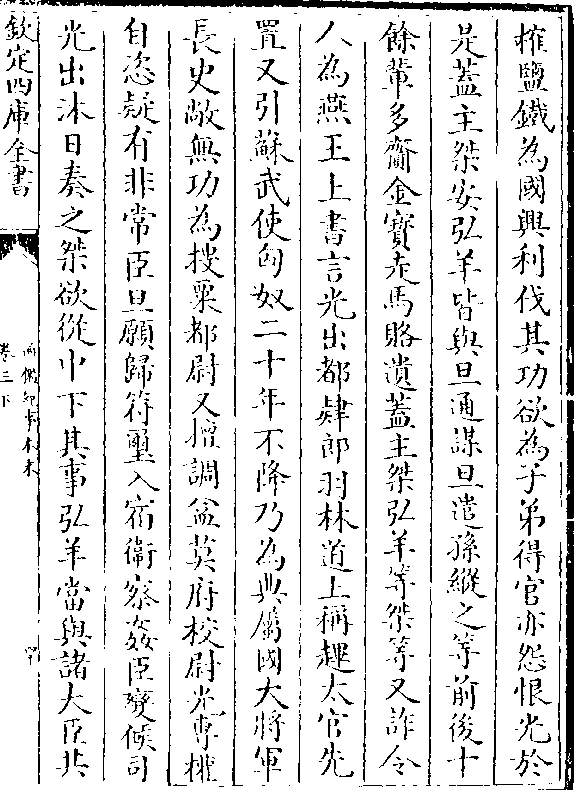 榷鹽鐵為國興利伐其功欲為子弟得官亦怨恨光於
是蓋主桀安弘羊皆與旦通謀旦遣孫縱之等前後十
餘輩多齎金寶走馬賂遺蓋主桀弘羊等桀等又詐令
人為燕王上書言光出都肄郎羽林道上稱趕太官先
置又引蘇武使匈奴二十年不降乃為典屬國大將軍
長史敞無功為搜粟都尉又擅調益莫府校尉光專權
自恣疑有非常臣旦願歸符璽入宿衞察姦臣變候司
光出沐日奏之桀欲從中下其事弘羊當與諸大臣共
欽定四庫全書
卷三下